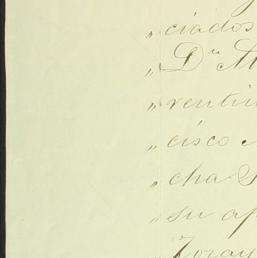 „ ciados
„ Dn M
„ ventin
„ cisco
„ cha S
„ su ap
„ Zoray